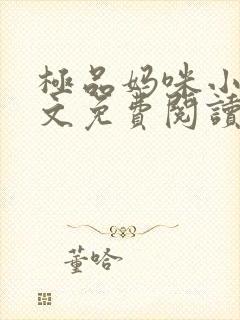 極品妈咪小
文免費閱讀
董哈